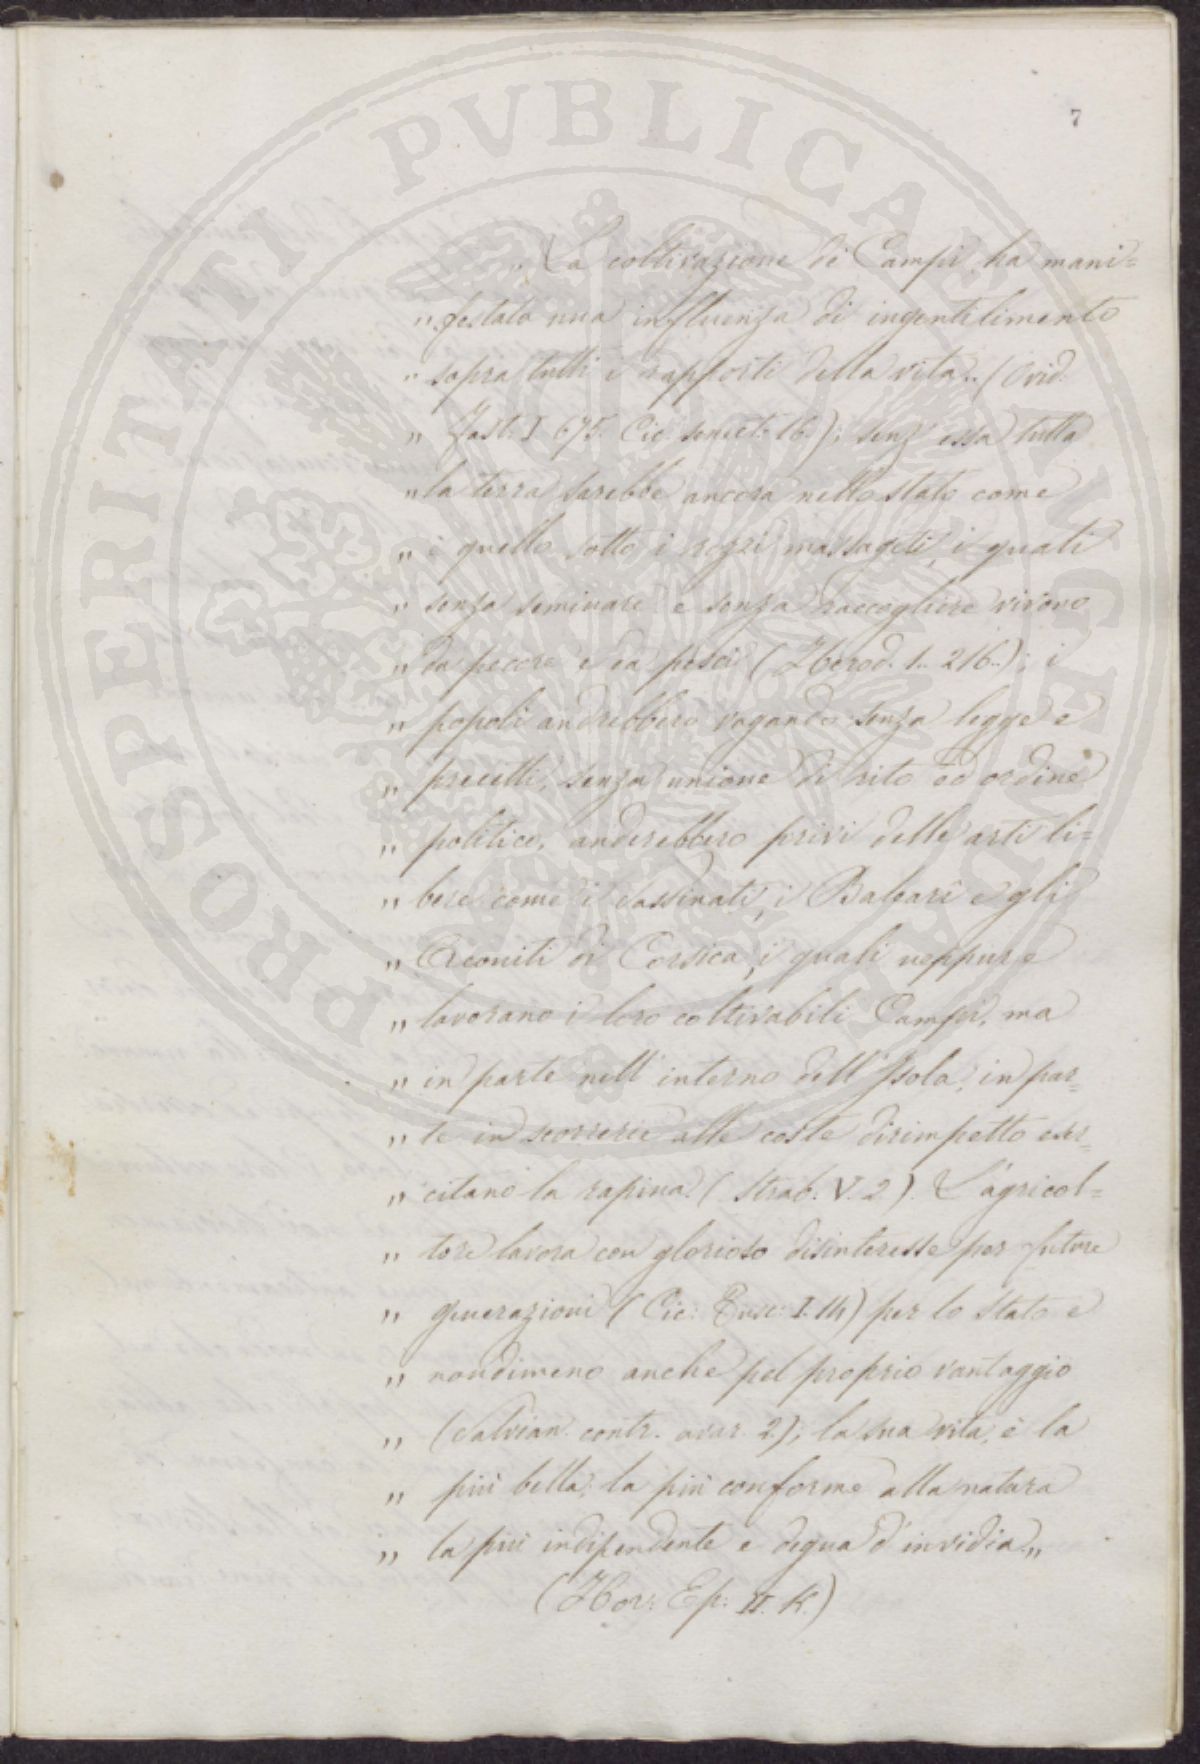 7
PROSPERITATI PVBLICAE AVGENDAE
„ La coltivazione di Campi ha mani=
„ festata una influenza di ingentilimento
„ sopra tutti i rapporti della vita.. (Ovid.
„ Fast. I 675. Cic. senect. 16.); senz' essa tutta
„ la terra sarebbe ancora nello stato come
„ è quello sotto i rozzi massageti, i quali
„ senza seminare e senza raccogliere vivono
„ da pecore e da pesci (Herod. 1.. 216..); i
„ popoli andrebbero vagando senza legge e
„ precetti, senza unione di rito ed ordine
„ politico, anderebbero privi delle arti li=
„ bere come i sassinati, i Baleari e gli
„ Arconiti di Corsica, i quali neppure
„ lavorano i loro coltivabili Campi, ma
„ in parte nell' interno dell' Isola, in par=
„ te in scorrerie alle coste dirimpetto eser=
„ citano la rapina. (Strab. V. 2). L'agricol=
„ tore lavora con glorioso disinteresse per future
„ generazioni (Cic: Tusc: I. 14) per lo Stato e
„ nondimeno anche pel proprio vantaggio
„ (Salvian. contr. avar. 2.); la sua vita, è la
„ più bella, la più conforme alla natura
„ la più indipendente e degna d' invidia.„
(Hor: Ep: II. K.)